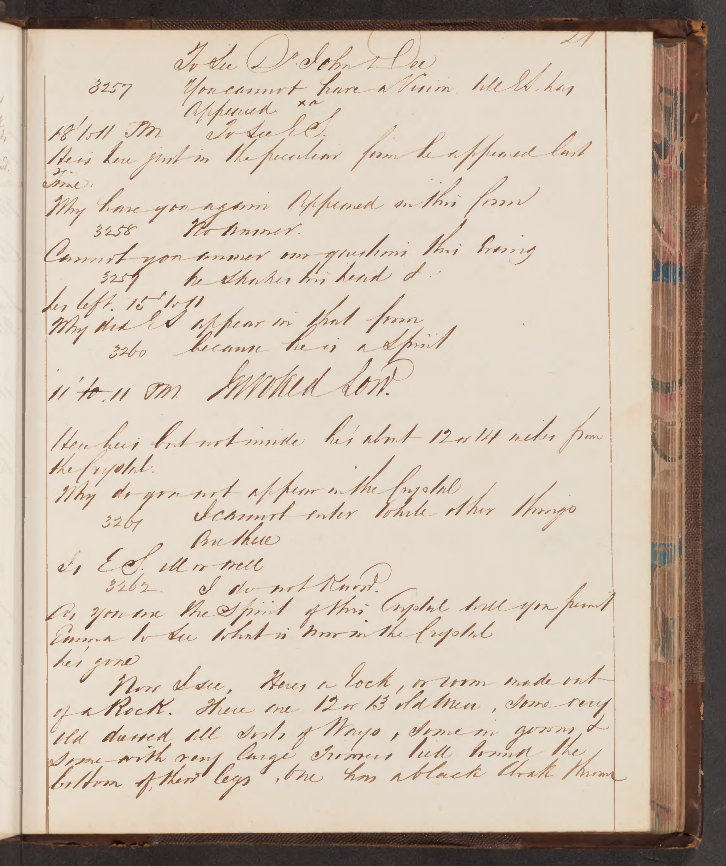 21
To See Dr. John Dee
3257 You cannot have a Vision till ES. has
Appeared
18 to 11 PM To See ES.
He is here just in the peculiar form he appeared last
Time.
Why have you again Appeared in this form
3258 No Answer.
Cannot you answer our questions this Evening
3259 he shakes his head &
he's left. 15 to 11
Why did ES appear in that form
3260 because he is a Spirit
11 to 11 PM Invoked
Here he is but not inside he's about 12 or 14 miles from
the Crystal.
Why do you not appear in the Crystal
3261 I cannot enter while other things
Are there
Is ES. ill or well
3262 I do not Know.
As you are the Spirit of this Crystal will you permit
Emma to See what is now in the Crystal
he's gone
Now I see, Heres a Rock, or room made out
of a Rock. There are 12 or 13 old Men, some very
old dressed all sorts of Ways, some in gowns, &
some with very large Trowsers tied round the
bottom of their legs, One has a black Cloak thrown